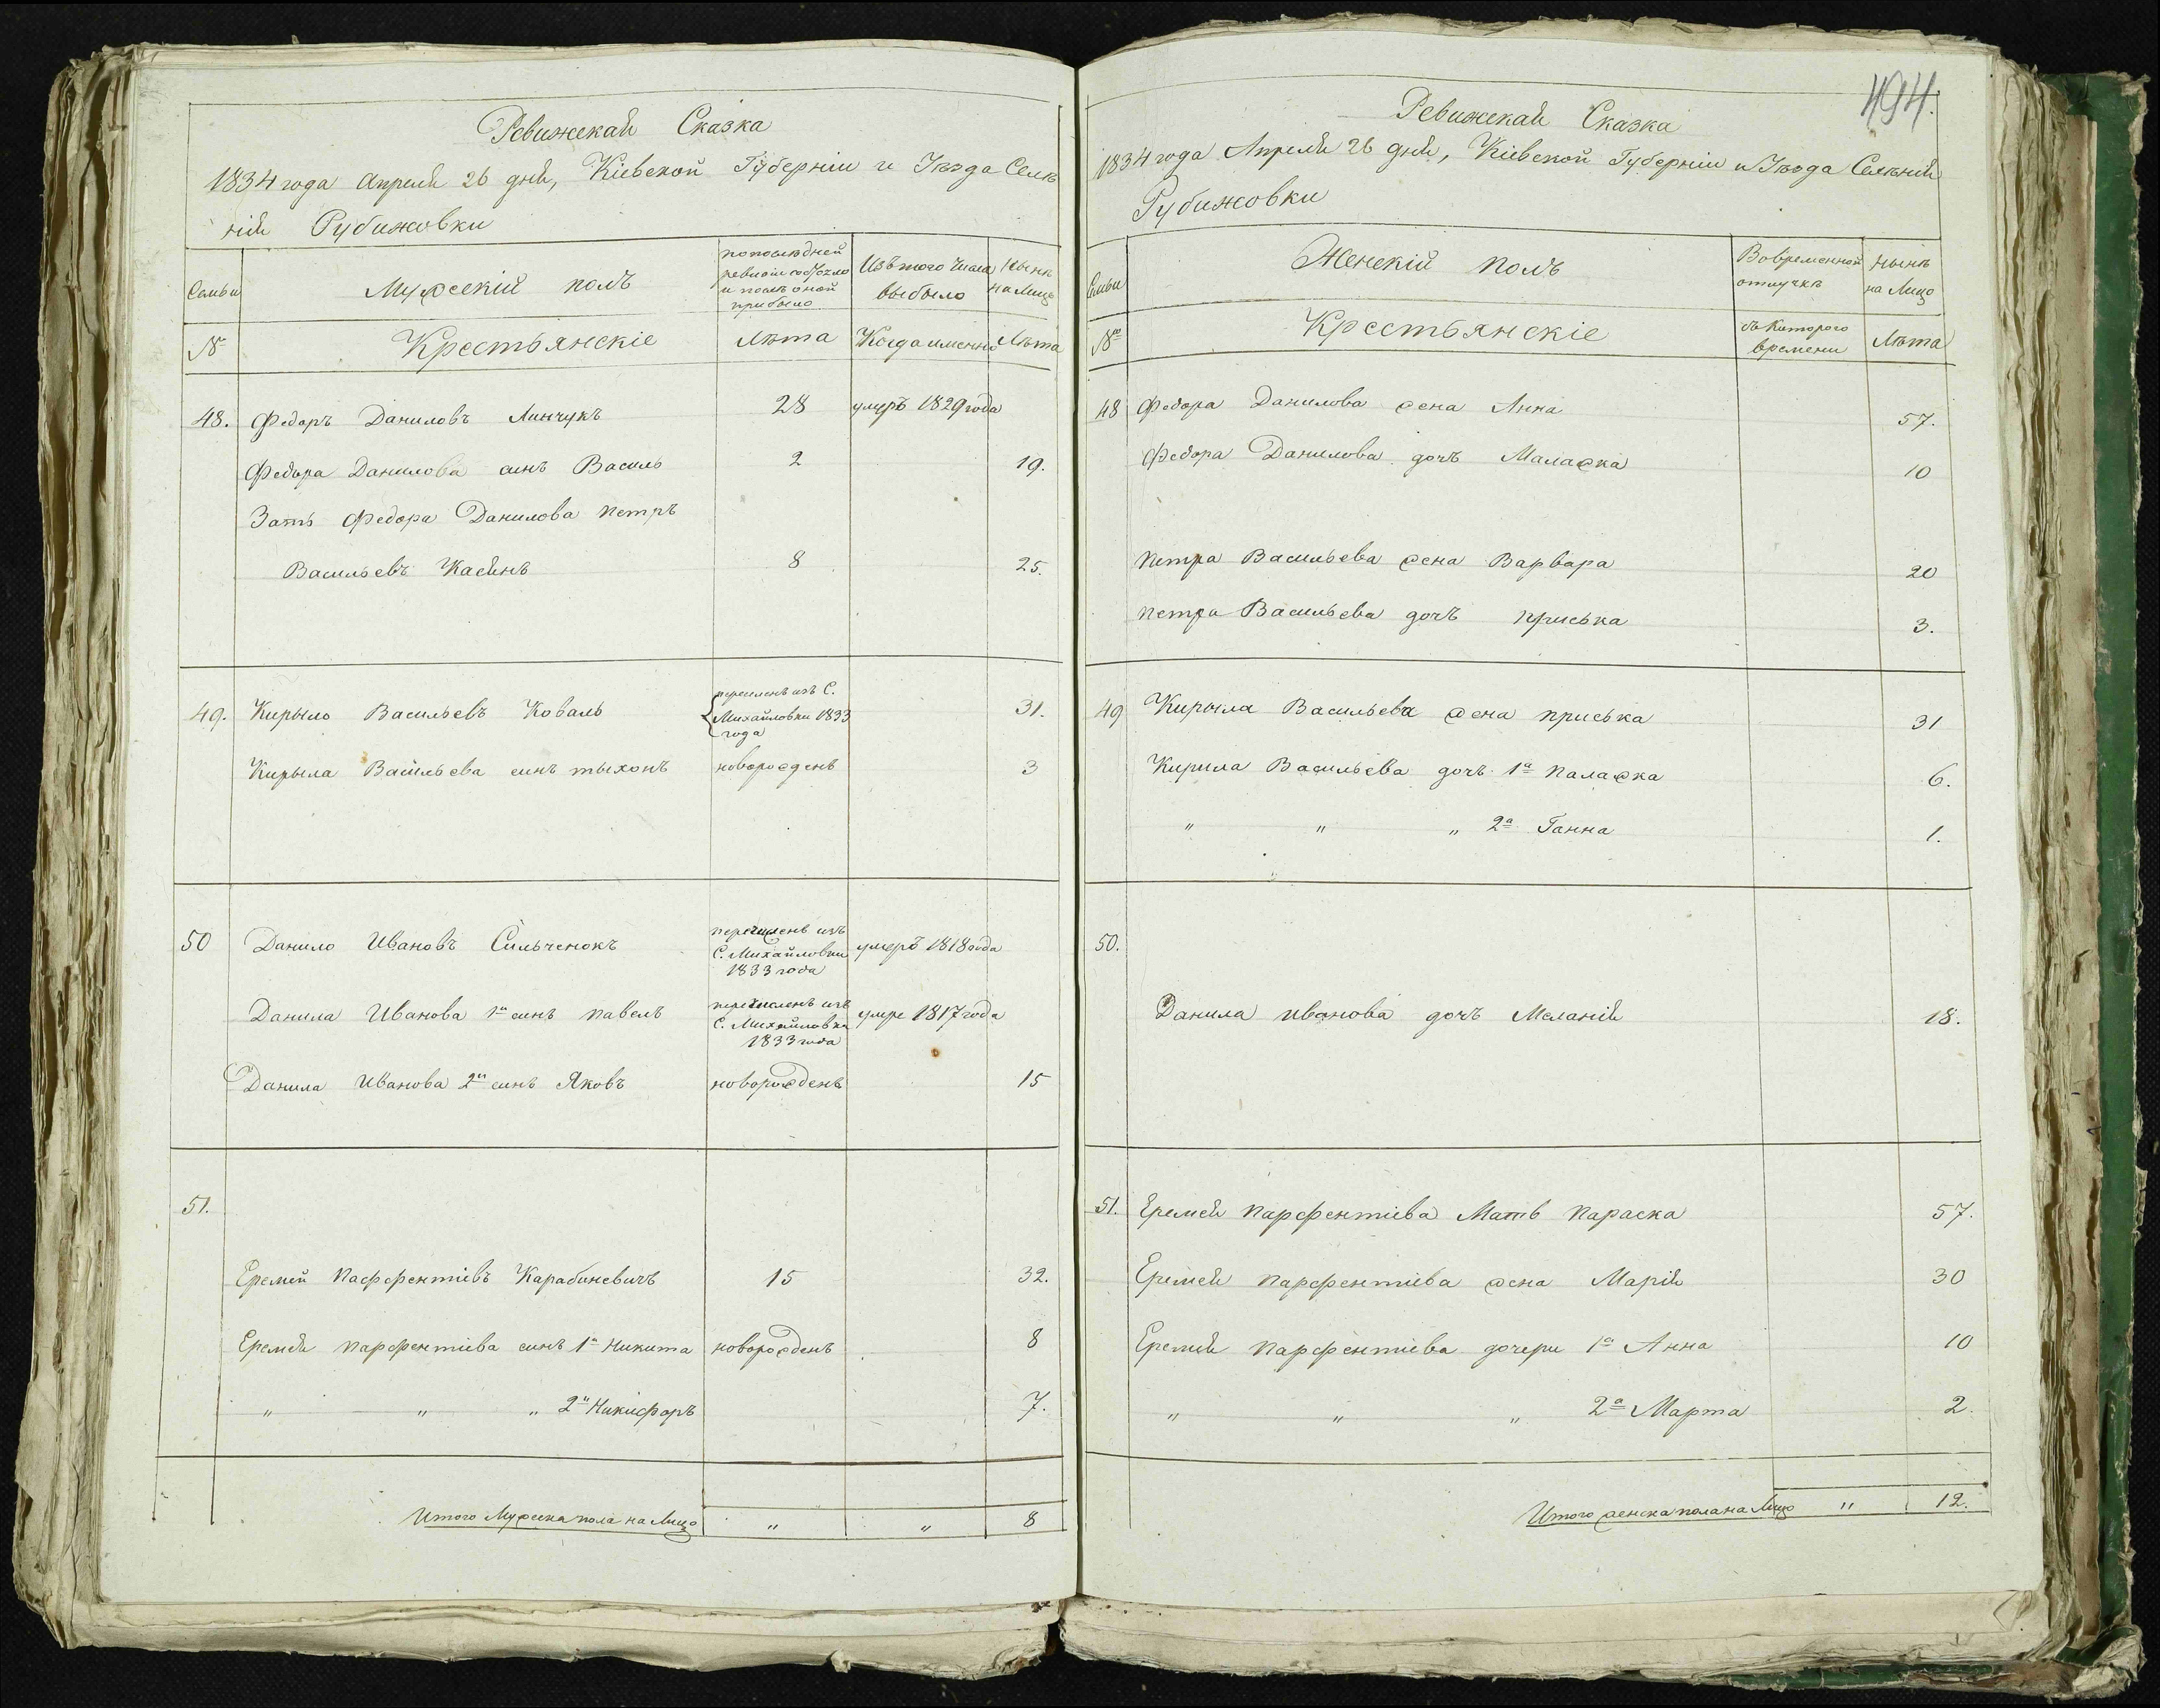 Ревижская Сказка
1834 года Апреля 26 дня, Кіевской Губерніи и Уѣзда Селѣ
нія Рубижовки
Семьи
Мужескій полъ
по последней
ревизіи состояло
и послѣ оной
прибыло
Изъ того числа
выбыло
Нынѣ
на Лицо
№
Крестьянскіе
Лѣта
Когда именно
Лѣта
48. Федоръ Даниловъ Линчукъ 28 умеръ 1829 года
Федора Данилова синъ Василь 2 19.
Зать Федора Данилова петръ
Васильевъ Касянъ 8 25.
49. Кирыло Васильевъ Коваль 31.
перечисленъ изъ С.
Михайловки 1833
года
Кирыла Васильева синъ тыхонъ новорожденъ 3
50 Данило Ивановъ Сильченокъ умеръ 1818 года
перечисленъ изъ
С. Михайловки
1833 года
Данила Иванова 1й синъ павелъ умре 1817 года
перечисленъ изъ
С. Михайловки
1833 года
Данила Иванова 2й синъ Яковъ новорожденъ 15
51.
Еремей парфентіевъ Карабиневичъ 15 32.
Еремея парфентіева синъ 1й Никита новорожденъ 8
" " " 2й Никифоръ 7.
Итого Мужеска пола на Лицо " " 8
494.
Ревижская Сказка
1834 года Апреля 26 дня, Кіевской Губерніи и Уѣзда Селѣнія
Рубижовки
Семьи
Женскій полъ
Во временной
отлучкѣ
Нынѣ
на Лицо
№
Крестьянскіе
съ Которого
времени
Лѣта
48 Федора Данилова жена Анна 57.
Федора Данилова дочъ Маланка 10
петра Васильева жена Варвара 20
петра Васильева дочъ приська 3.
49 Кирыла Васильева жена приська 31
Кирила Васильева дочъ 1а палажка 6.
" " " 2а Ганна 1.
50.
Данила иванова дочъ Меланія 18.
51. Еремея парфентіева Мать параска 57.
Еремея парфентіева жена Марія 30
Еремея парфентіева дочери 1а Анна 10
" " " 2а Марта 2.
Итого женска пола на Лицо " 12.